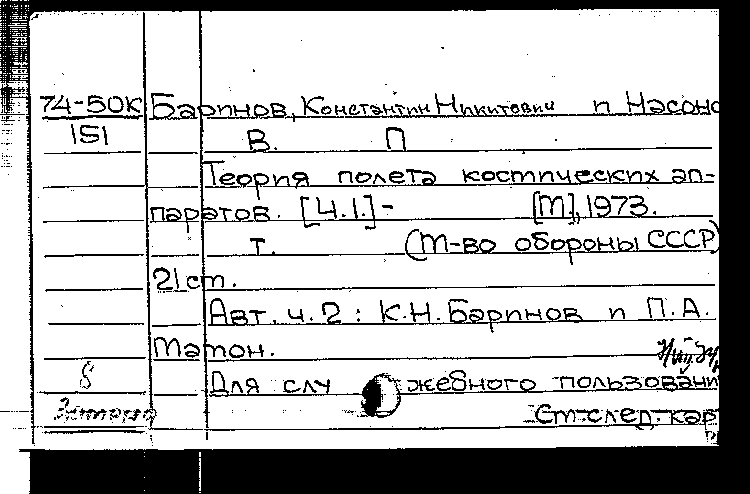 74-50К Баринов, Константин Никитович и Насоно
151 В. П
Теория полета космических ап-
паратов. [Ч.1.]- [М], 1973.
т. (М-во обороны СССР)
21 см.
Авт. ч. 2: К.Н. Баринов и П.А.
Мамон.
8 Для слу жебного пользовани
См след. кар